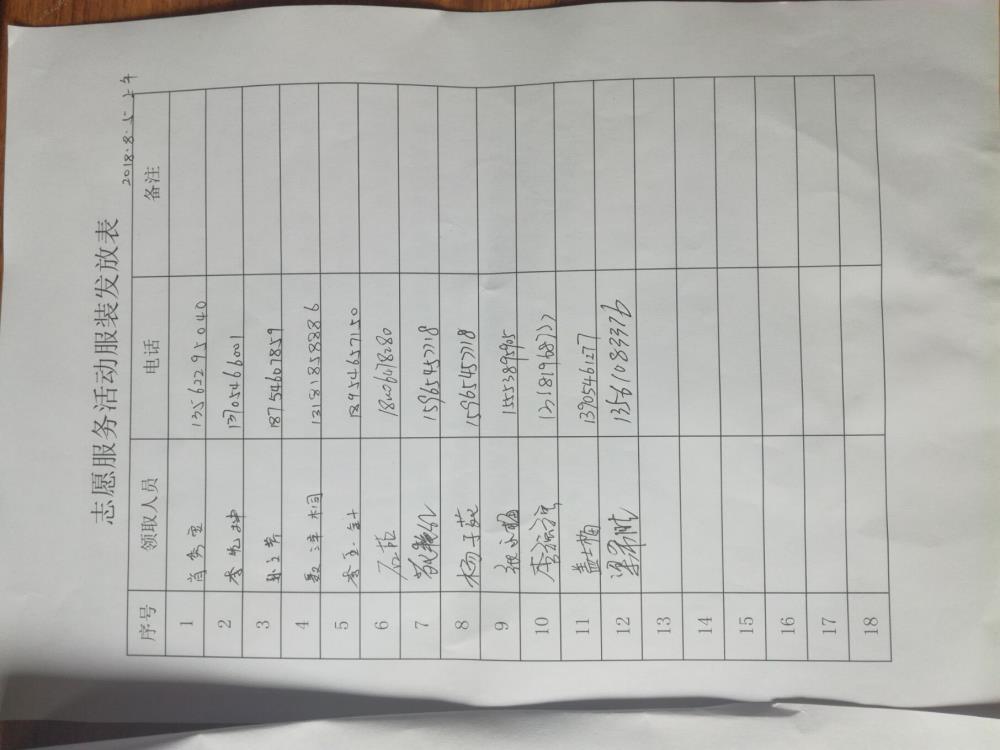 志愿服务活动服装发放表
2018.8.5 上午
序号 领取人员 电话 备注
1 肖秀宝 13562295040
2 李先坤 13705466001
3 18754607859
4 13181858886
5 李玉 18954657150
6 石 18206478280
7 15965457718
8 杨子苑 15965457718
9 15553895905
10 李 
11 盖士梅 13905461277
12 梁 13561083376
13
14
15
16
17
18